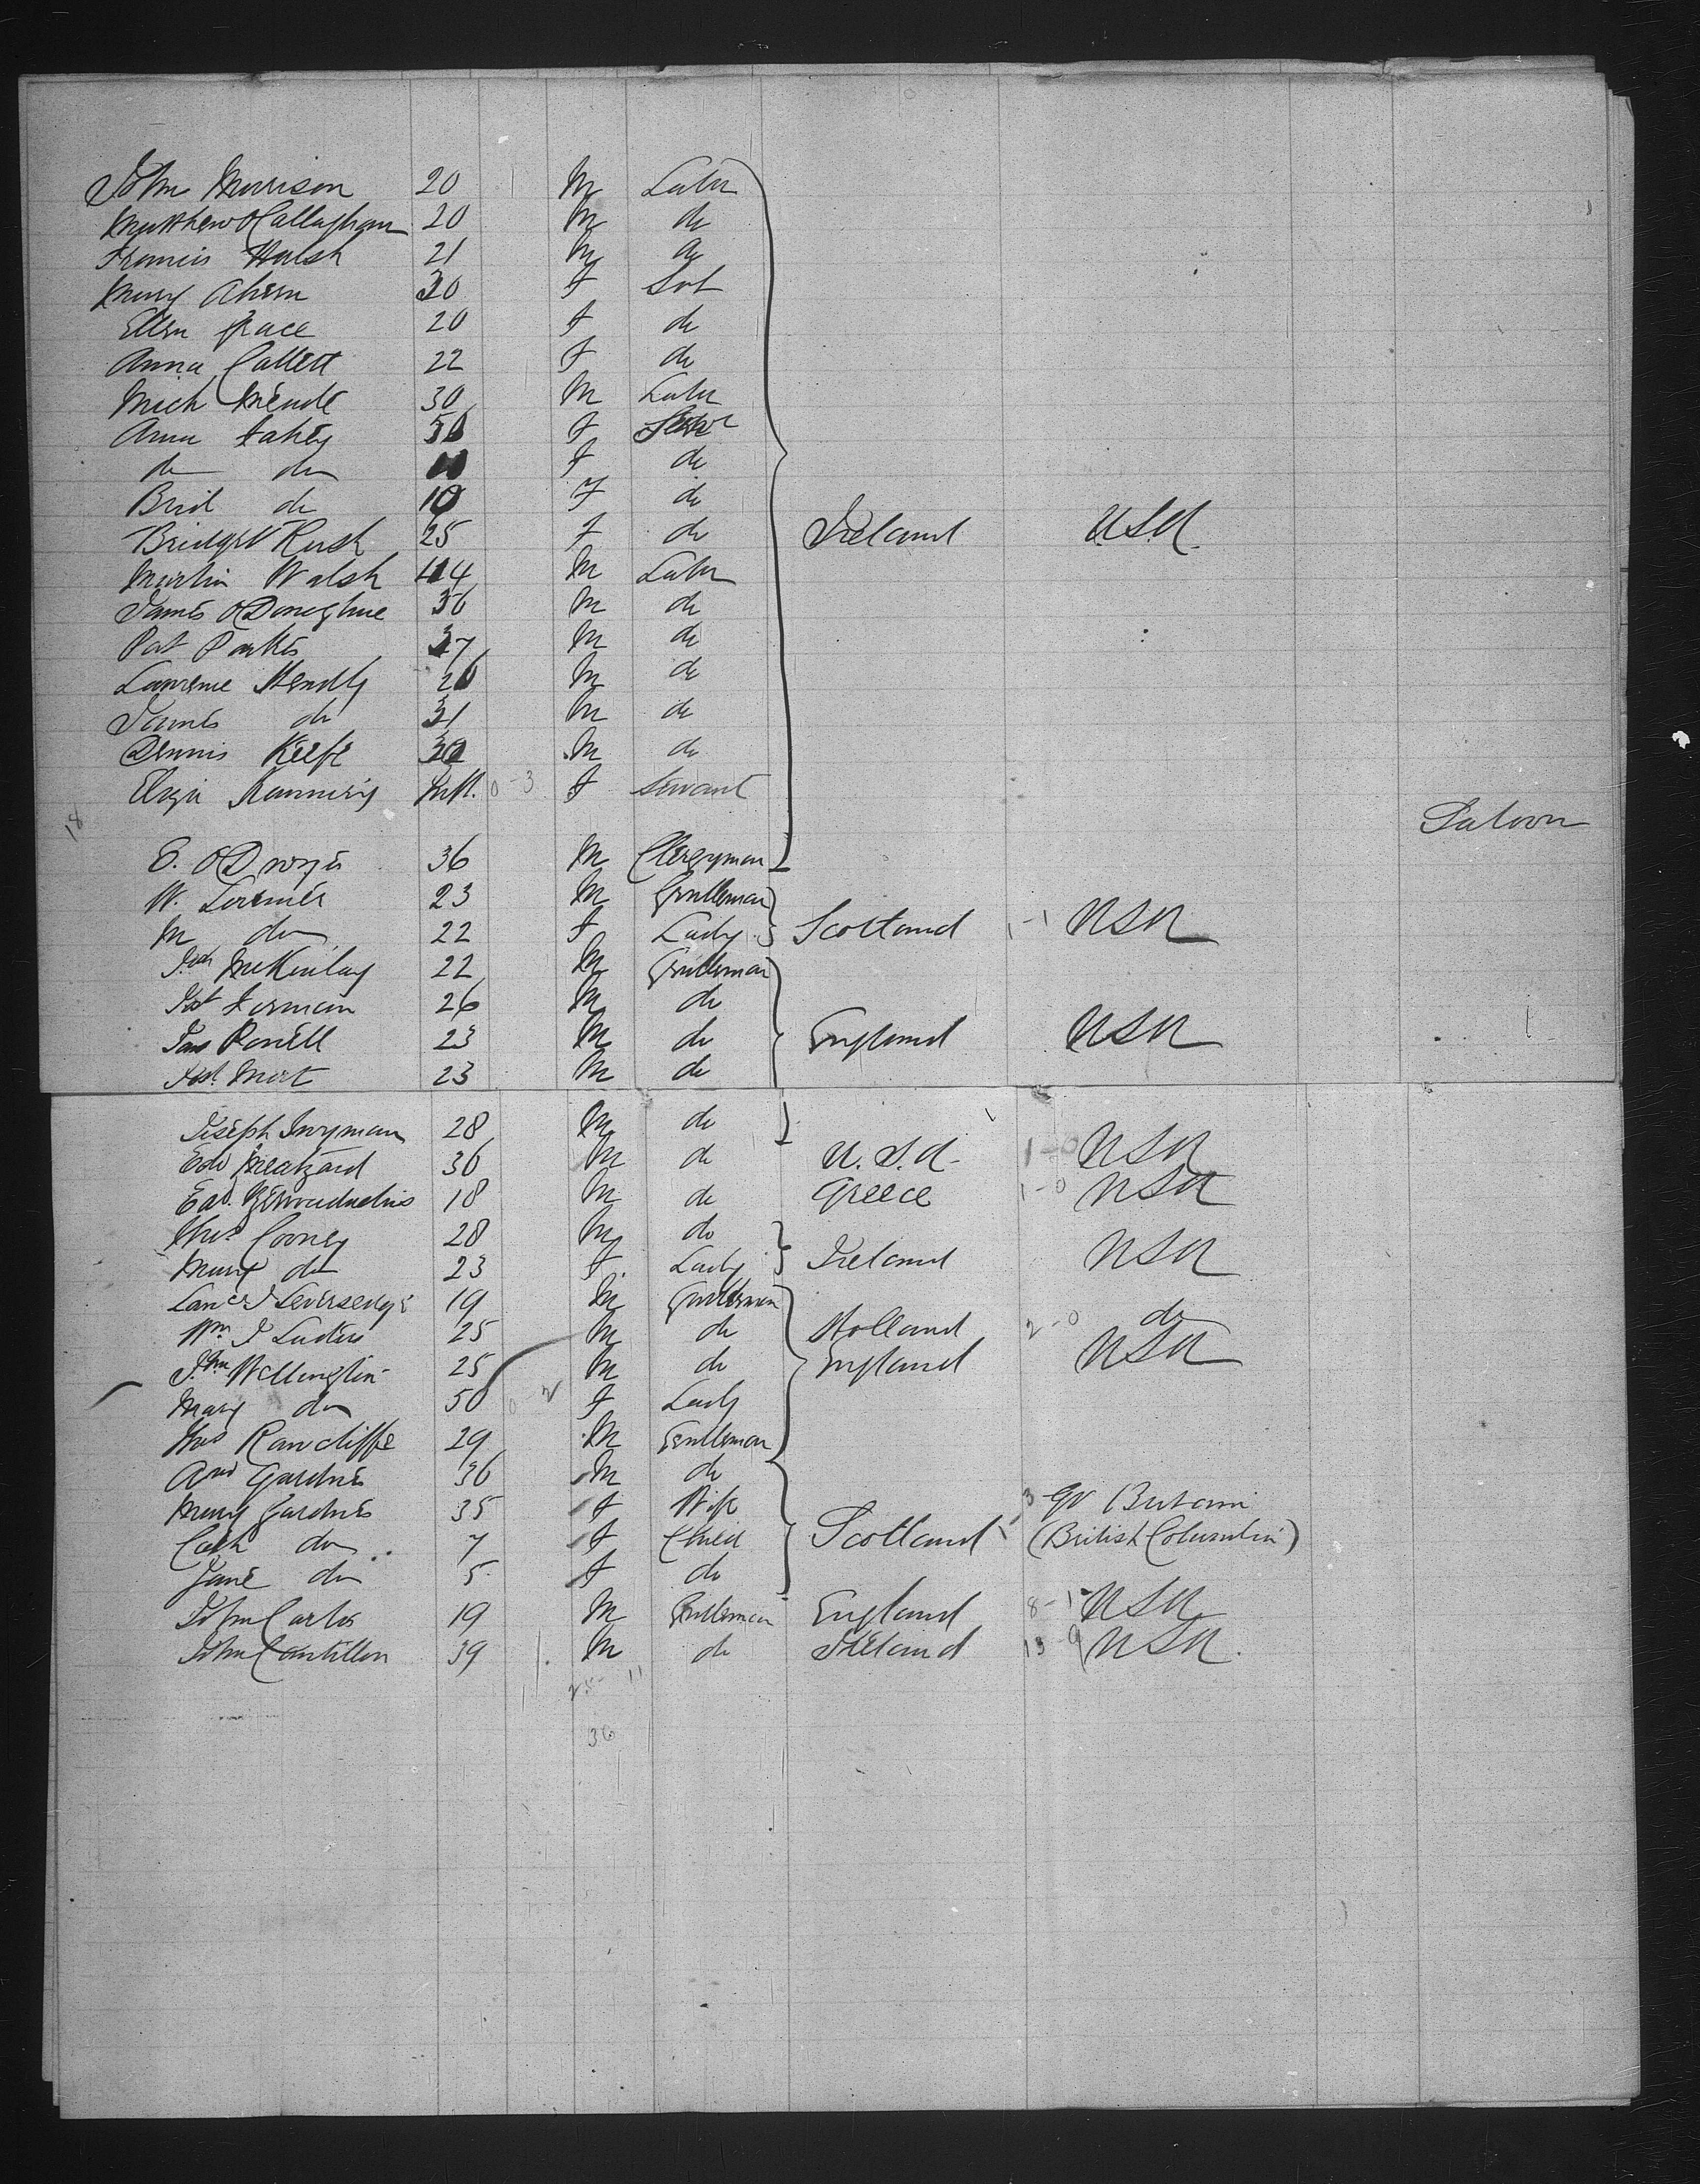 John Morrison 20 M Labr
Matthew O'Callaghan 20 M do
Francis Walsh 21 M do
Mary Ahern 30 F Svt
Ellen Grace 20 F do
Anna Collett 22 F do
Mich 30 M Labr
Anna Fahey 50 F Servt
do do F do
Brid do 10 F do
Bridget Rush 25 F do Ireland U.S.A.
Martin Walsh 44 M Labr
James O'Donoghue 36 M do
Pat Parkes 37 M do
Lawrence Hendly 26 M do
James do 31 M do
Dennis Keefe 30 M do
Eliza Inft. 0-3 F Servant
18 Saloon
E. O'Dwyer 36 M Clergyman
W. Lorimer 23 M Gentleman
M do 22 F Lady Scotland 1-1 USA
Jno McKinlay 22 M Gentleman
Jos Forman 26 M do
Jas Powell 23 M do England USA
Jos. Mort 23 M do
Joseph Twyman 28 M do
Edw 36 M do U.S.A. 1-0 USA
Ead. 18 M do Greece 1-0 USA
Thos Cooney 28 M do
Mary do 23 F. Lady Ireland USA
Lancr J Leversedge 19 M Gentleman
Wm J Luders 25 M do Holland 2-0 do
Jno Wellington 25 M do England USA
Mary do 50 0-2 F Lady
Thos Rawcliffe 29 M Gentleman
And Gardner 36 M do
Mary Gardner 35 F Wife 3 Gt Britain
Cath do 7 F Child Scotland (British Columbia)
Jane do 5 F do
John Carter 19 M Gentleman England 8-1 USA
John Cantillon 39 M do Ireland 13-9 USA.
25 11
36